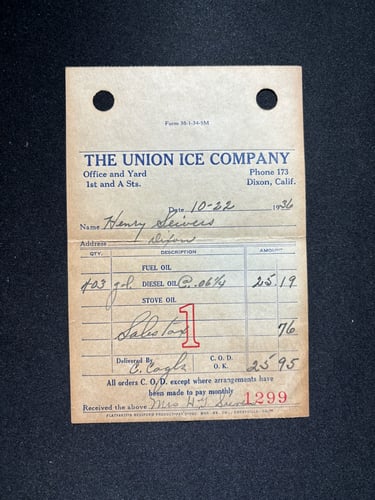 Form 38-1-34-5M
THE UNION ICE COMPANY
Office and Yard Phone 173
1st and A Sts. Dixon, Calif.
Date 10-22 1936
Name Henry Seivers
Address Dixon
QTY. DESCRIPTION AMOUNT
FUEL OIL
403 gal DIESEL OIL @ .06¼ 25 19
STOVE OIL
1
Sales Tax 76
Delivered By C.O.D.
C. Cagle O.K. 25 95
All orders C.O.D. except where arrangements have
been made to pay monthly
1299
Received the above Mrs H